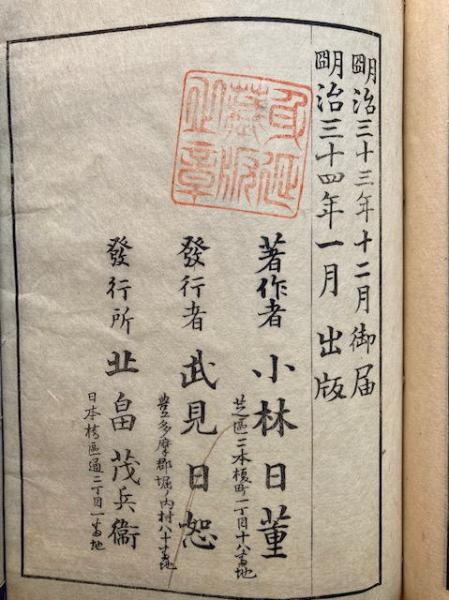 朙治三十三年十二月御届
朙治三十四年一月 出版
身延
藏版
之章
著作者 小林日董
芝區二本榎町一丁目十八番地
發行者 武見日恕
豊多摩郡堀ノ内村八十番地
發行所 北畠茂兵衞
日本橋區通二丁目一番地